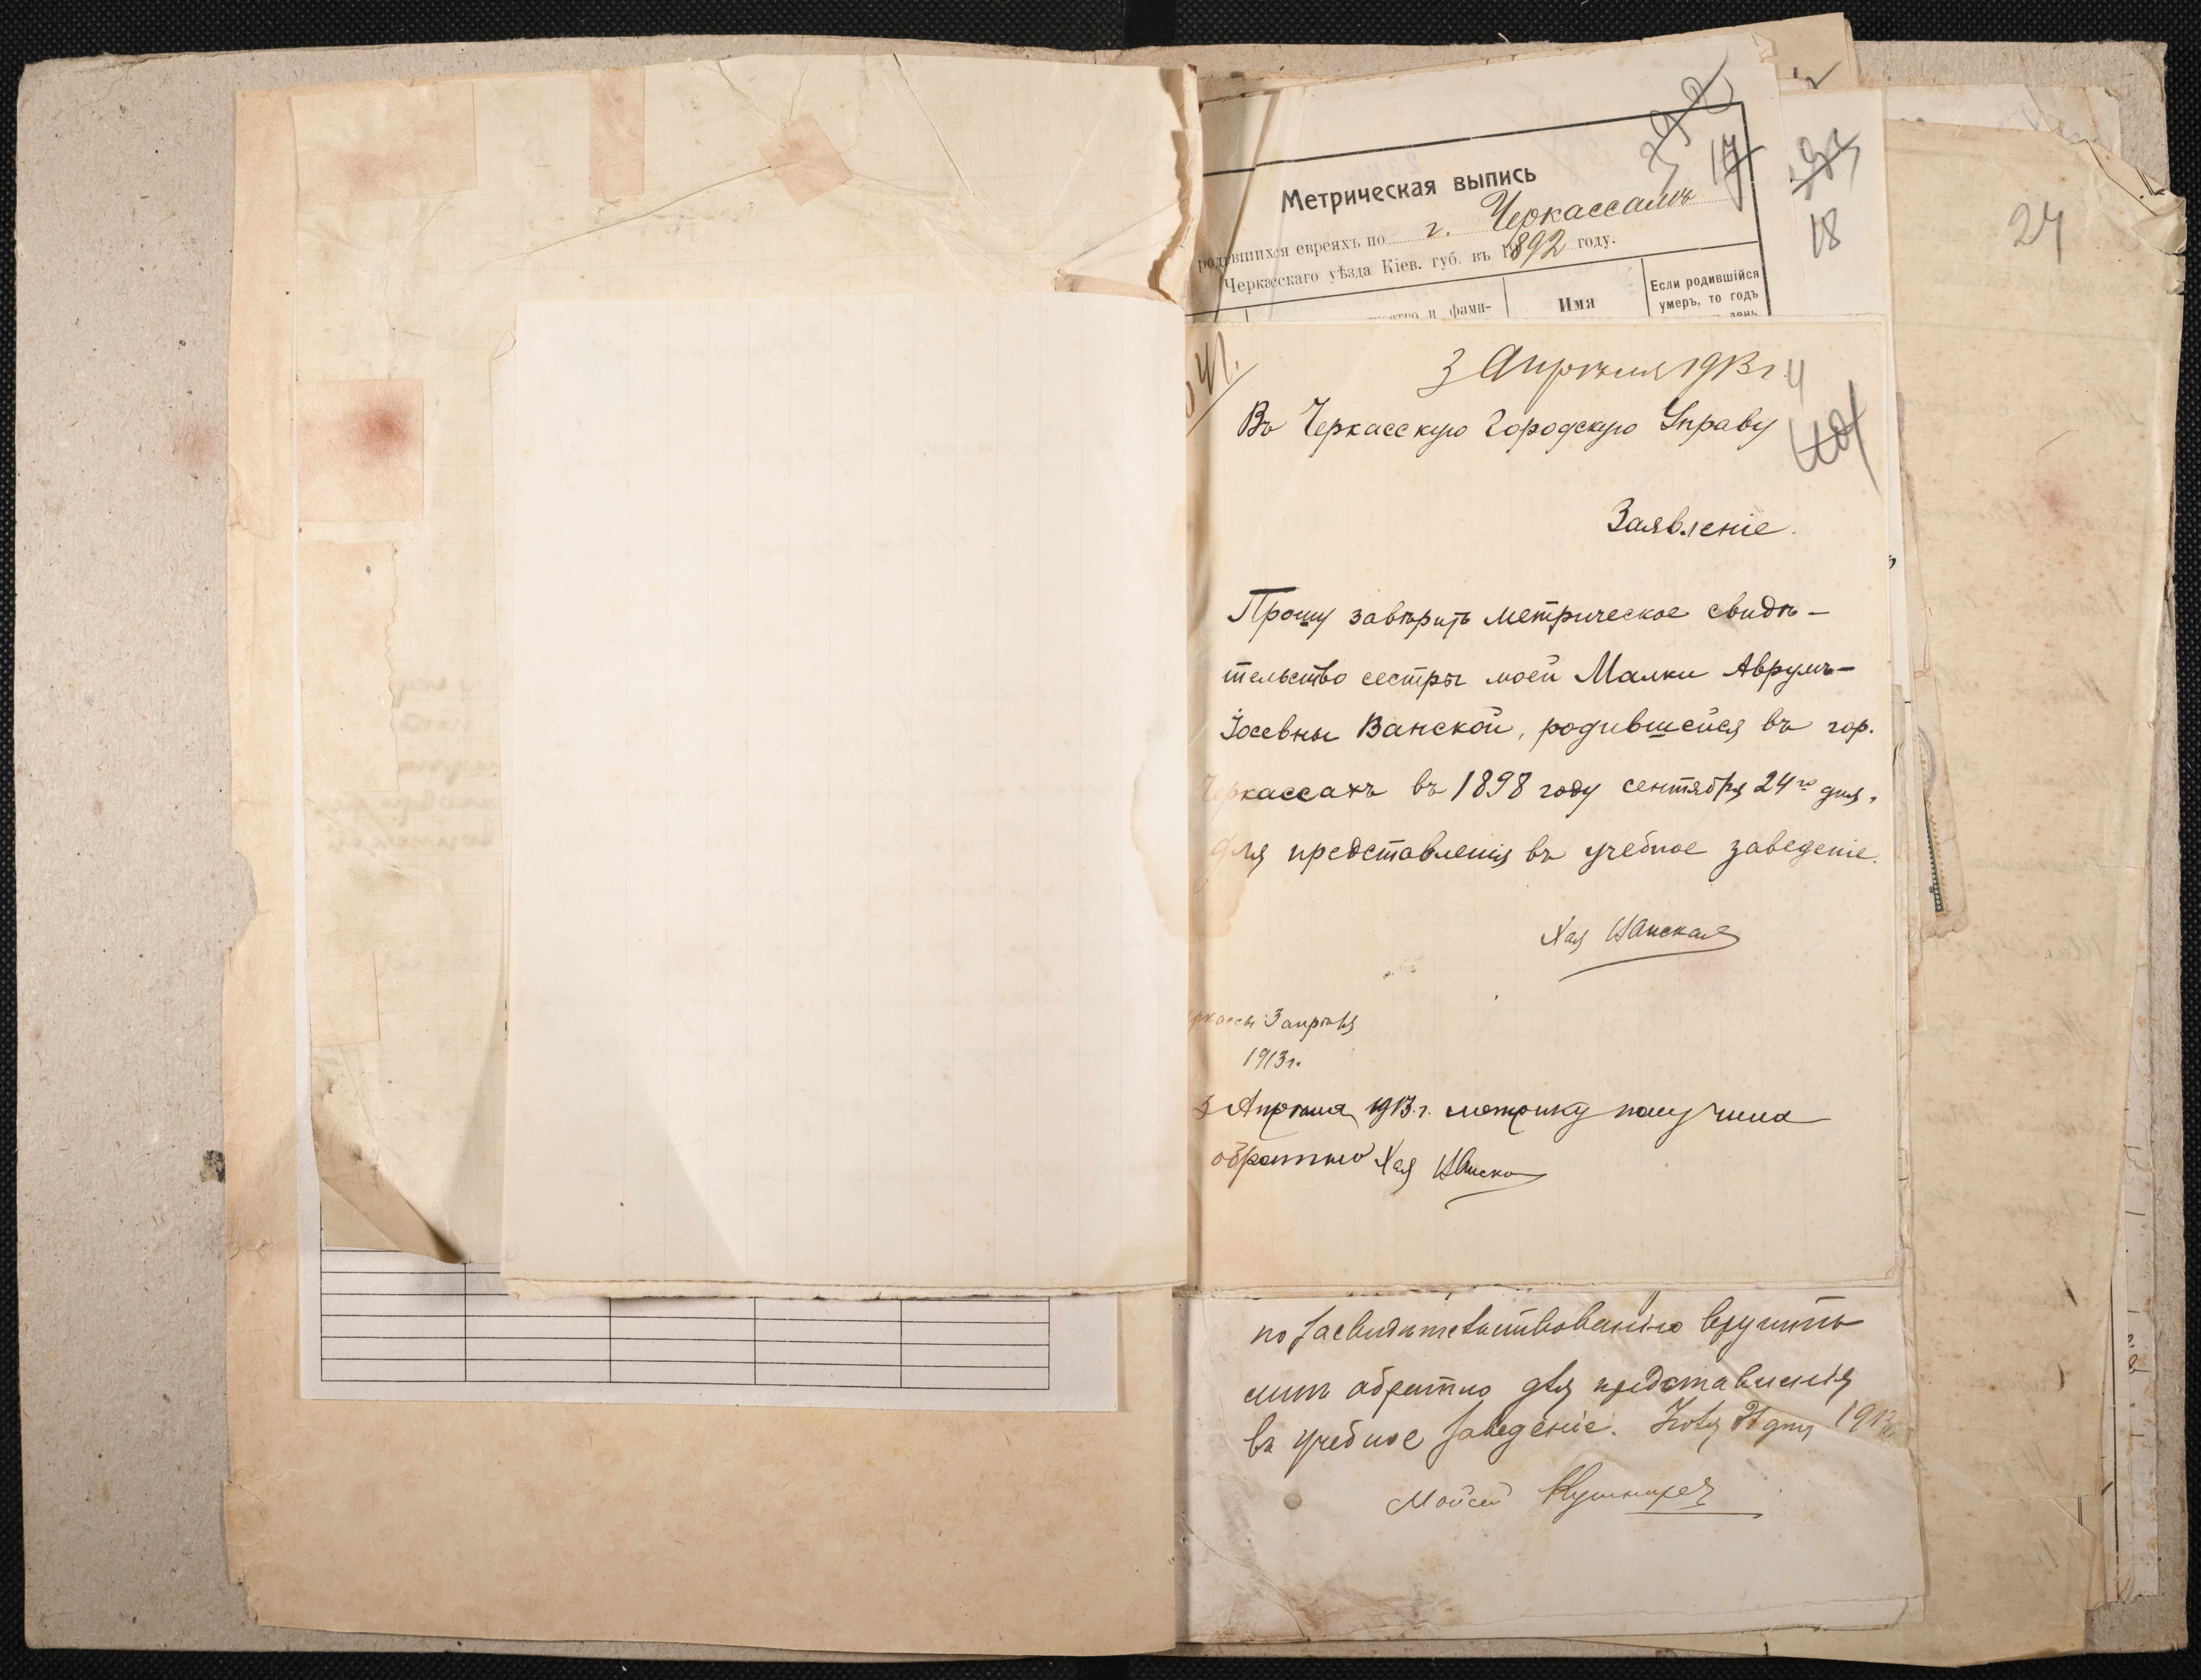 Метрическая выпись
родившихся евреяхъ по г. Черкассамъ
Черкасскаго уѣзда Кіев. губ. въ 1892 году.
17
18
24
Имя
Если родившійся
умеръ, то годъ
день
и фами-
3 Апрѣля 1913 г.
Въ Черкасскую Городскую Управу
Заявленіе.
Прошу завѣрить метрическое свидѣ-
тельство сестры моей Малки Аврумъ-
Іосевны Ванской, родившейся въ гор.
Черкассахъ въ 1898 году сентября 24го дня,
для представленія въ учебное заведеніе.
Хая Ванская
еркассы 3 апрѣля
1913 г.
3 Апрѣля 1913 г. метрику получила
обратно Хая
по засвидѣтельствованію вручить
мнѣ обратно для представленія
въ учебное заведеніе. дня 1913
Мойсей Кушниръ